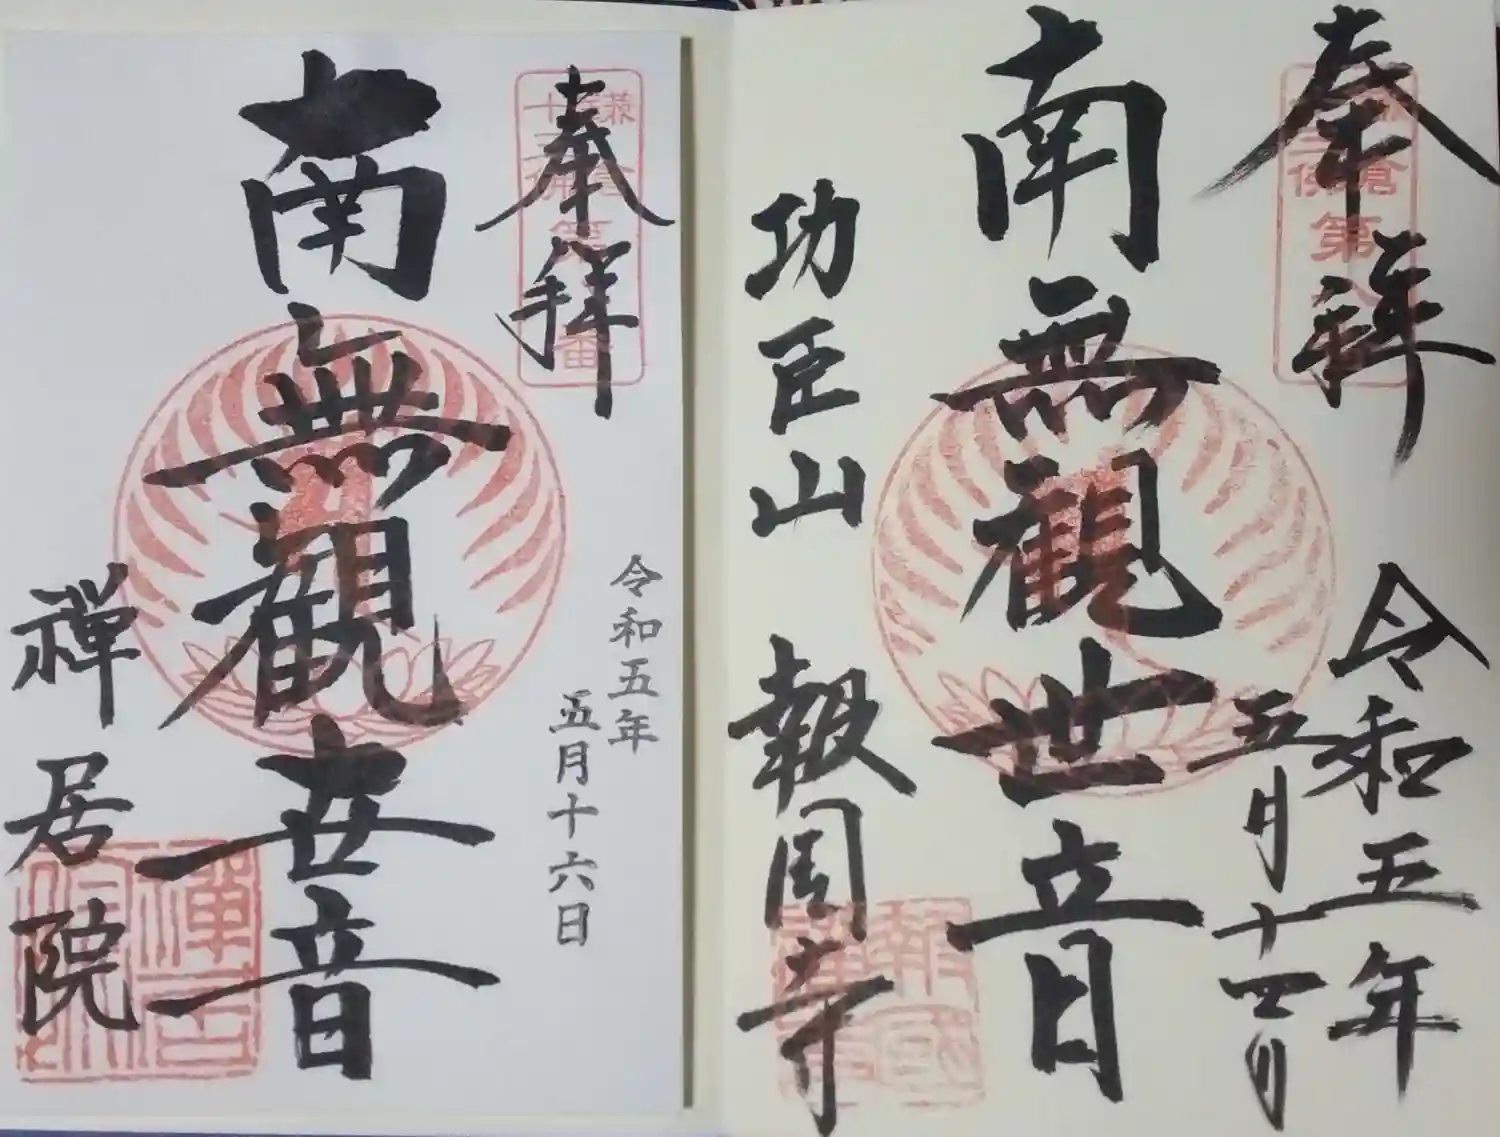 奉拝
令和五年
五月十四日
南無観世音
功臣山 報国寺
奉拝
令和五年
五月十六日
南無観世音
禅居院